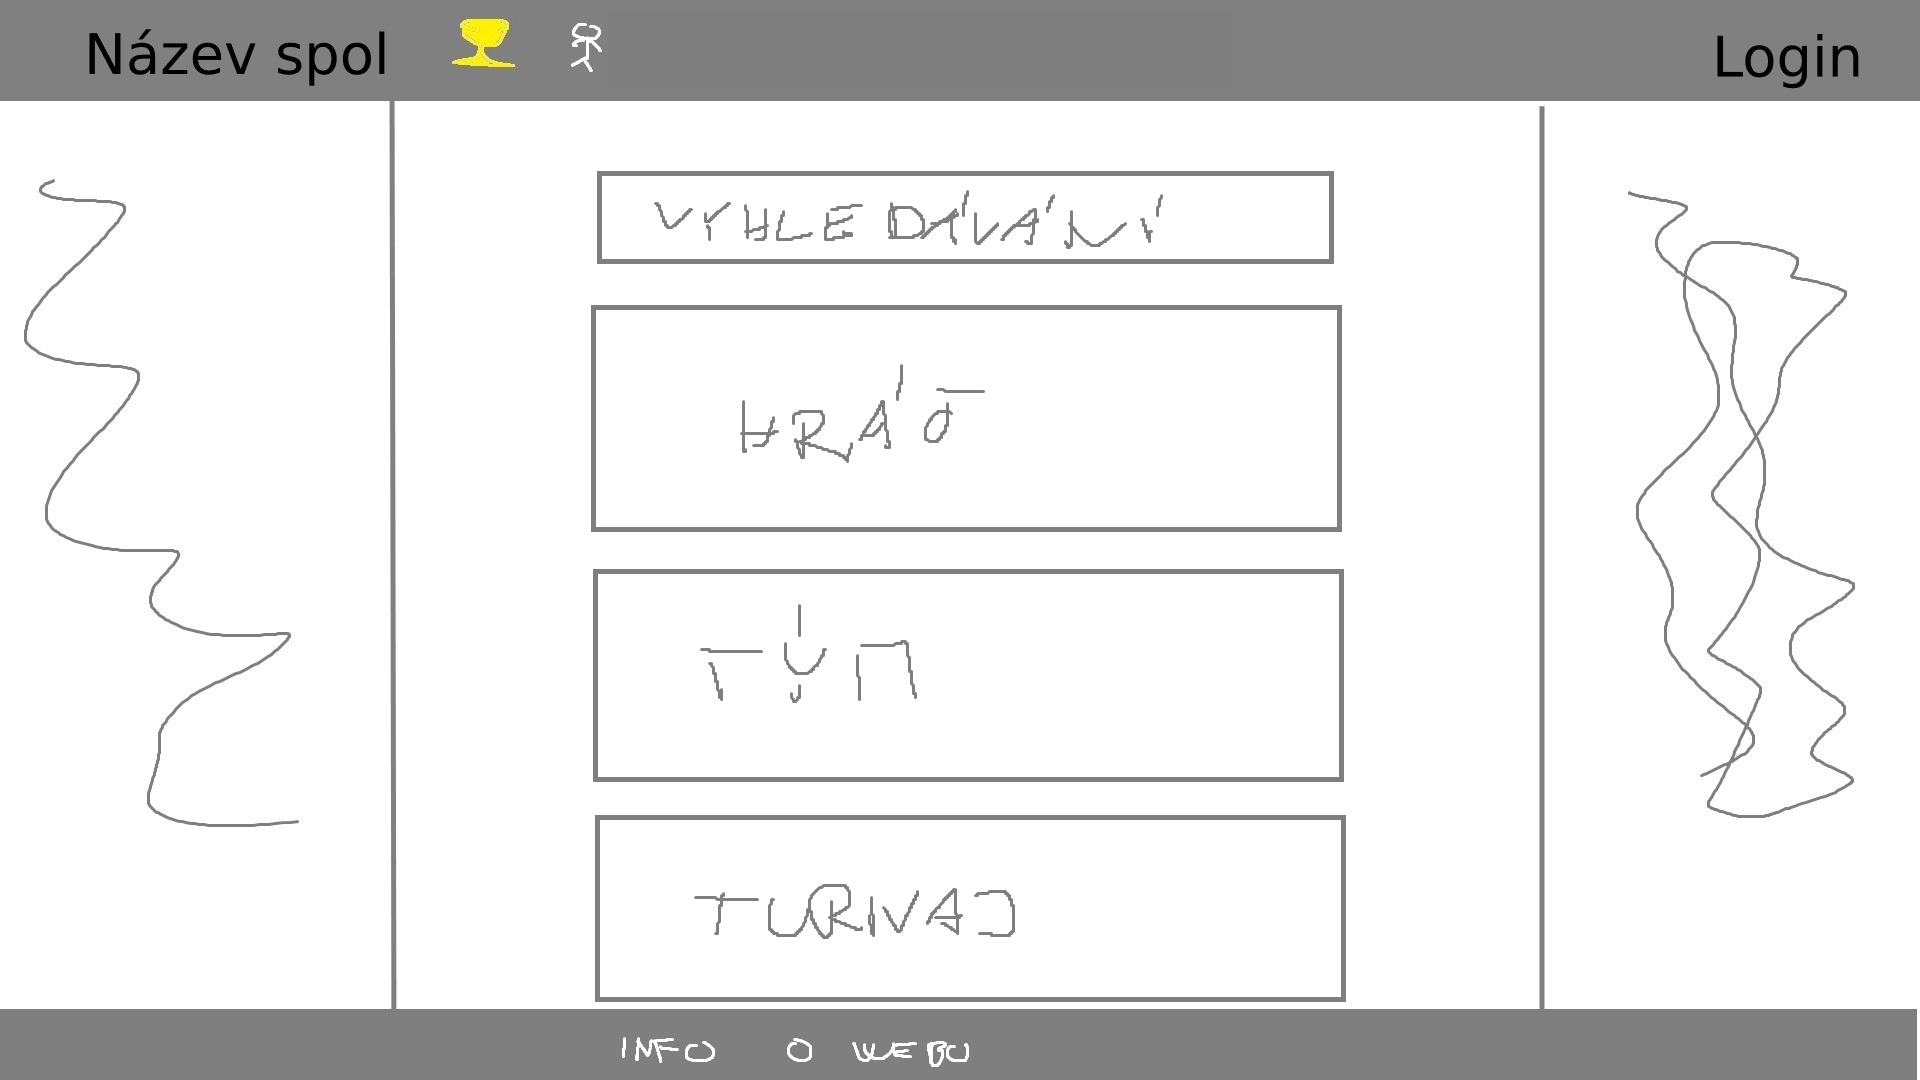 Název spol
Login
VYHLEDÁVÁNÍ
HRÁČ
TÝM
TURNAJ
INFO O WEBU